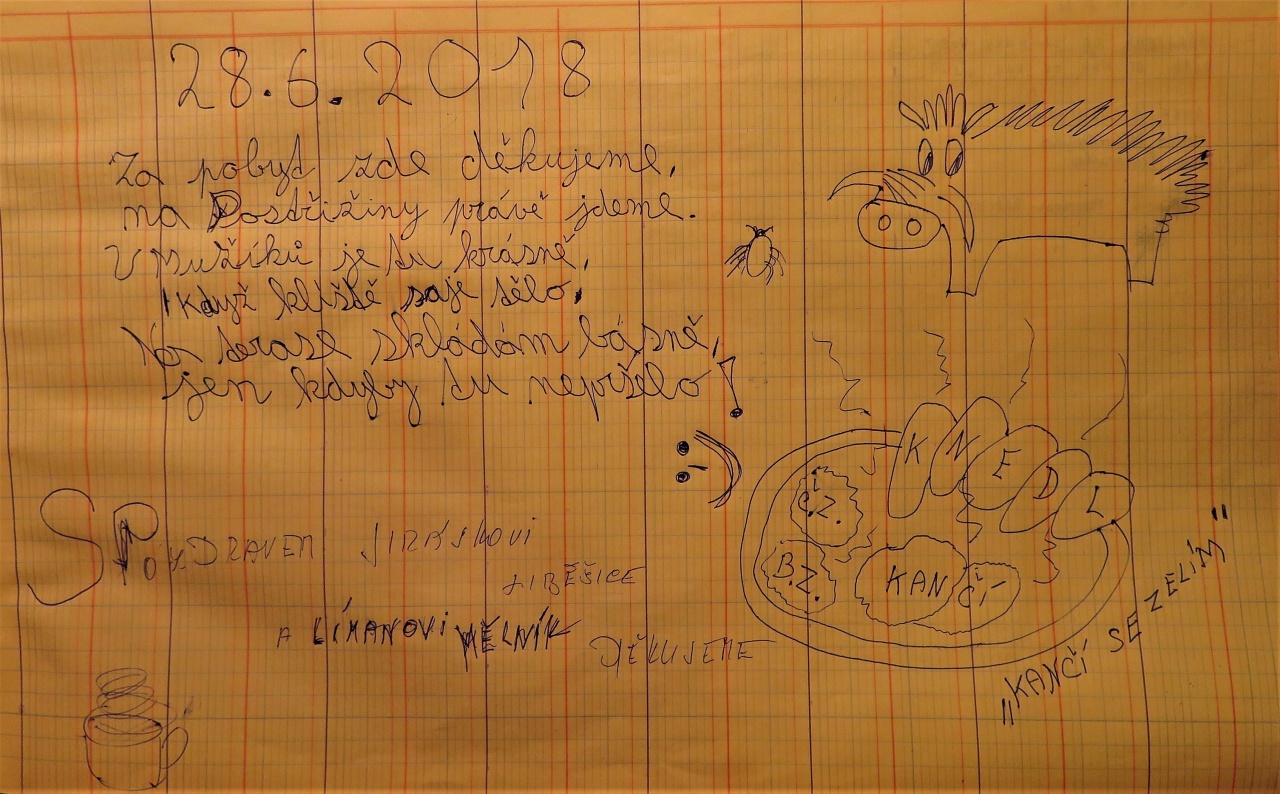 28.6.2018
Za pobyt zde děkujeme,
na Postřižiny právě jdeme.
U Mužíků je tu krásně,
I když klíště saje tělo,
Na terase skládám básně,
jen kdyby tu nepršelo!
:-)
S POZDRAVEM JIRÁSKOVI
LIBĚŠICE
A LÍMANOVI MĚLNÍK DĚKUJEME
KNEDL
Í
Č.Z.
B.Z.
KANČÍ
„KANČÍ SE ZELÍM"